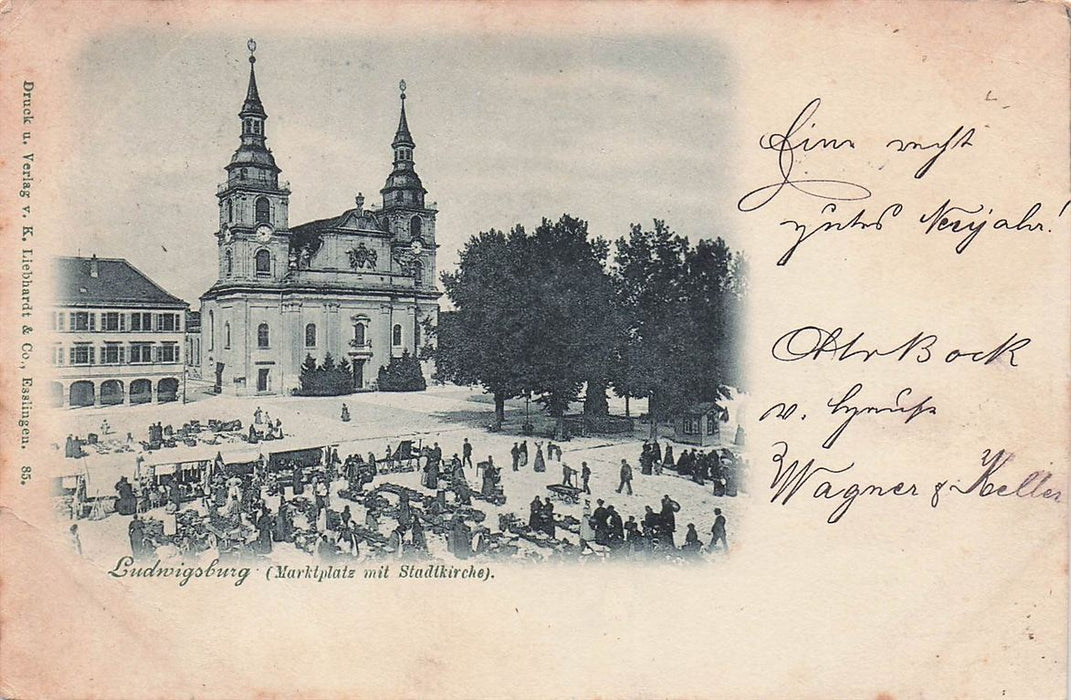 Druck u. Verlag v. K. Liebhardt & Co., Esslingen. 85.
Eine recht
gutes Neujahr!
Bock
v.
Wagner & Keller
Ludwigsburg (Marktplatz mit Stadtkirche).